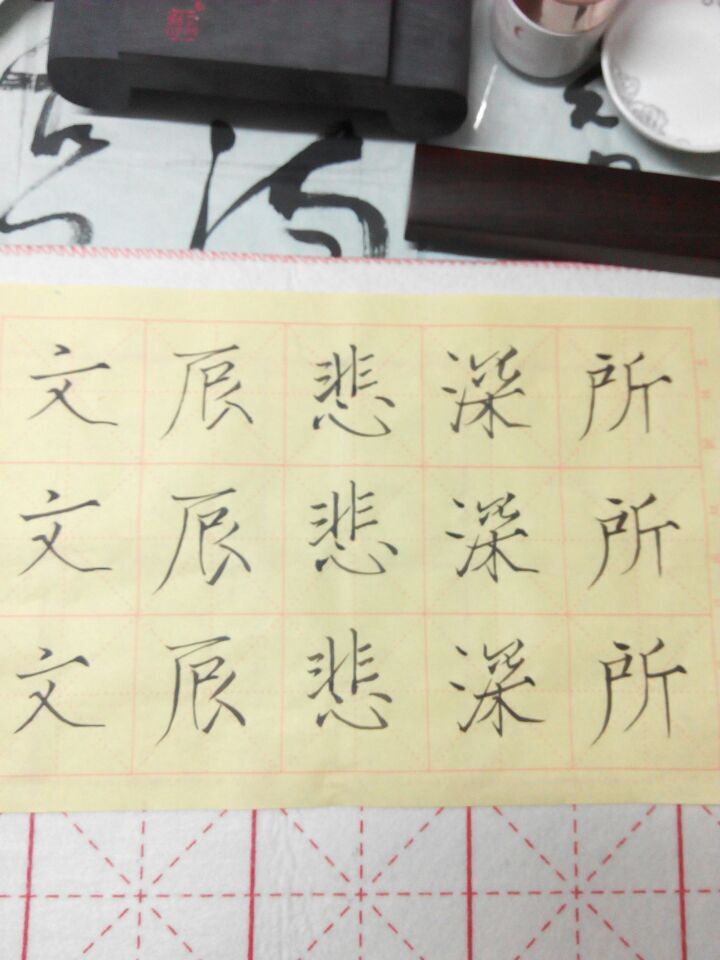 文辰悲深所
文辰悲深所
文辰悲深所